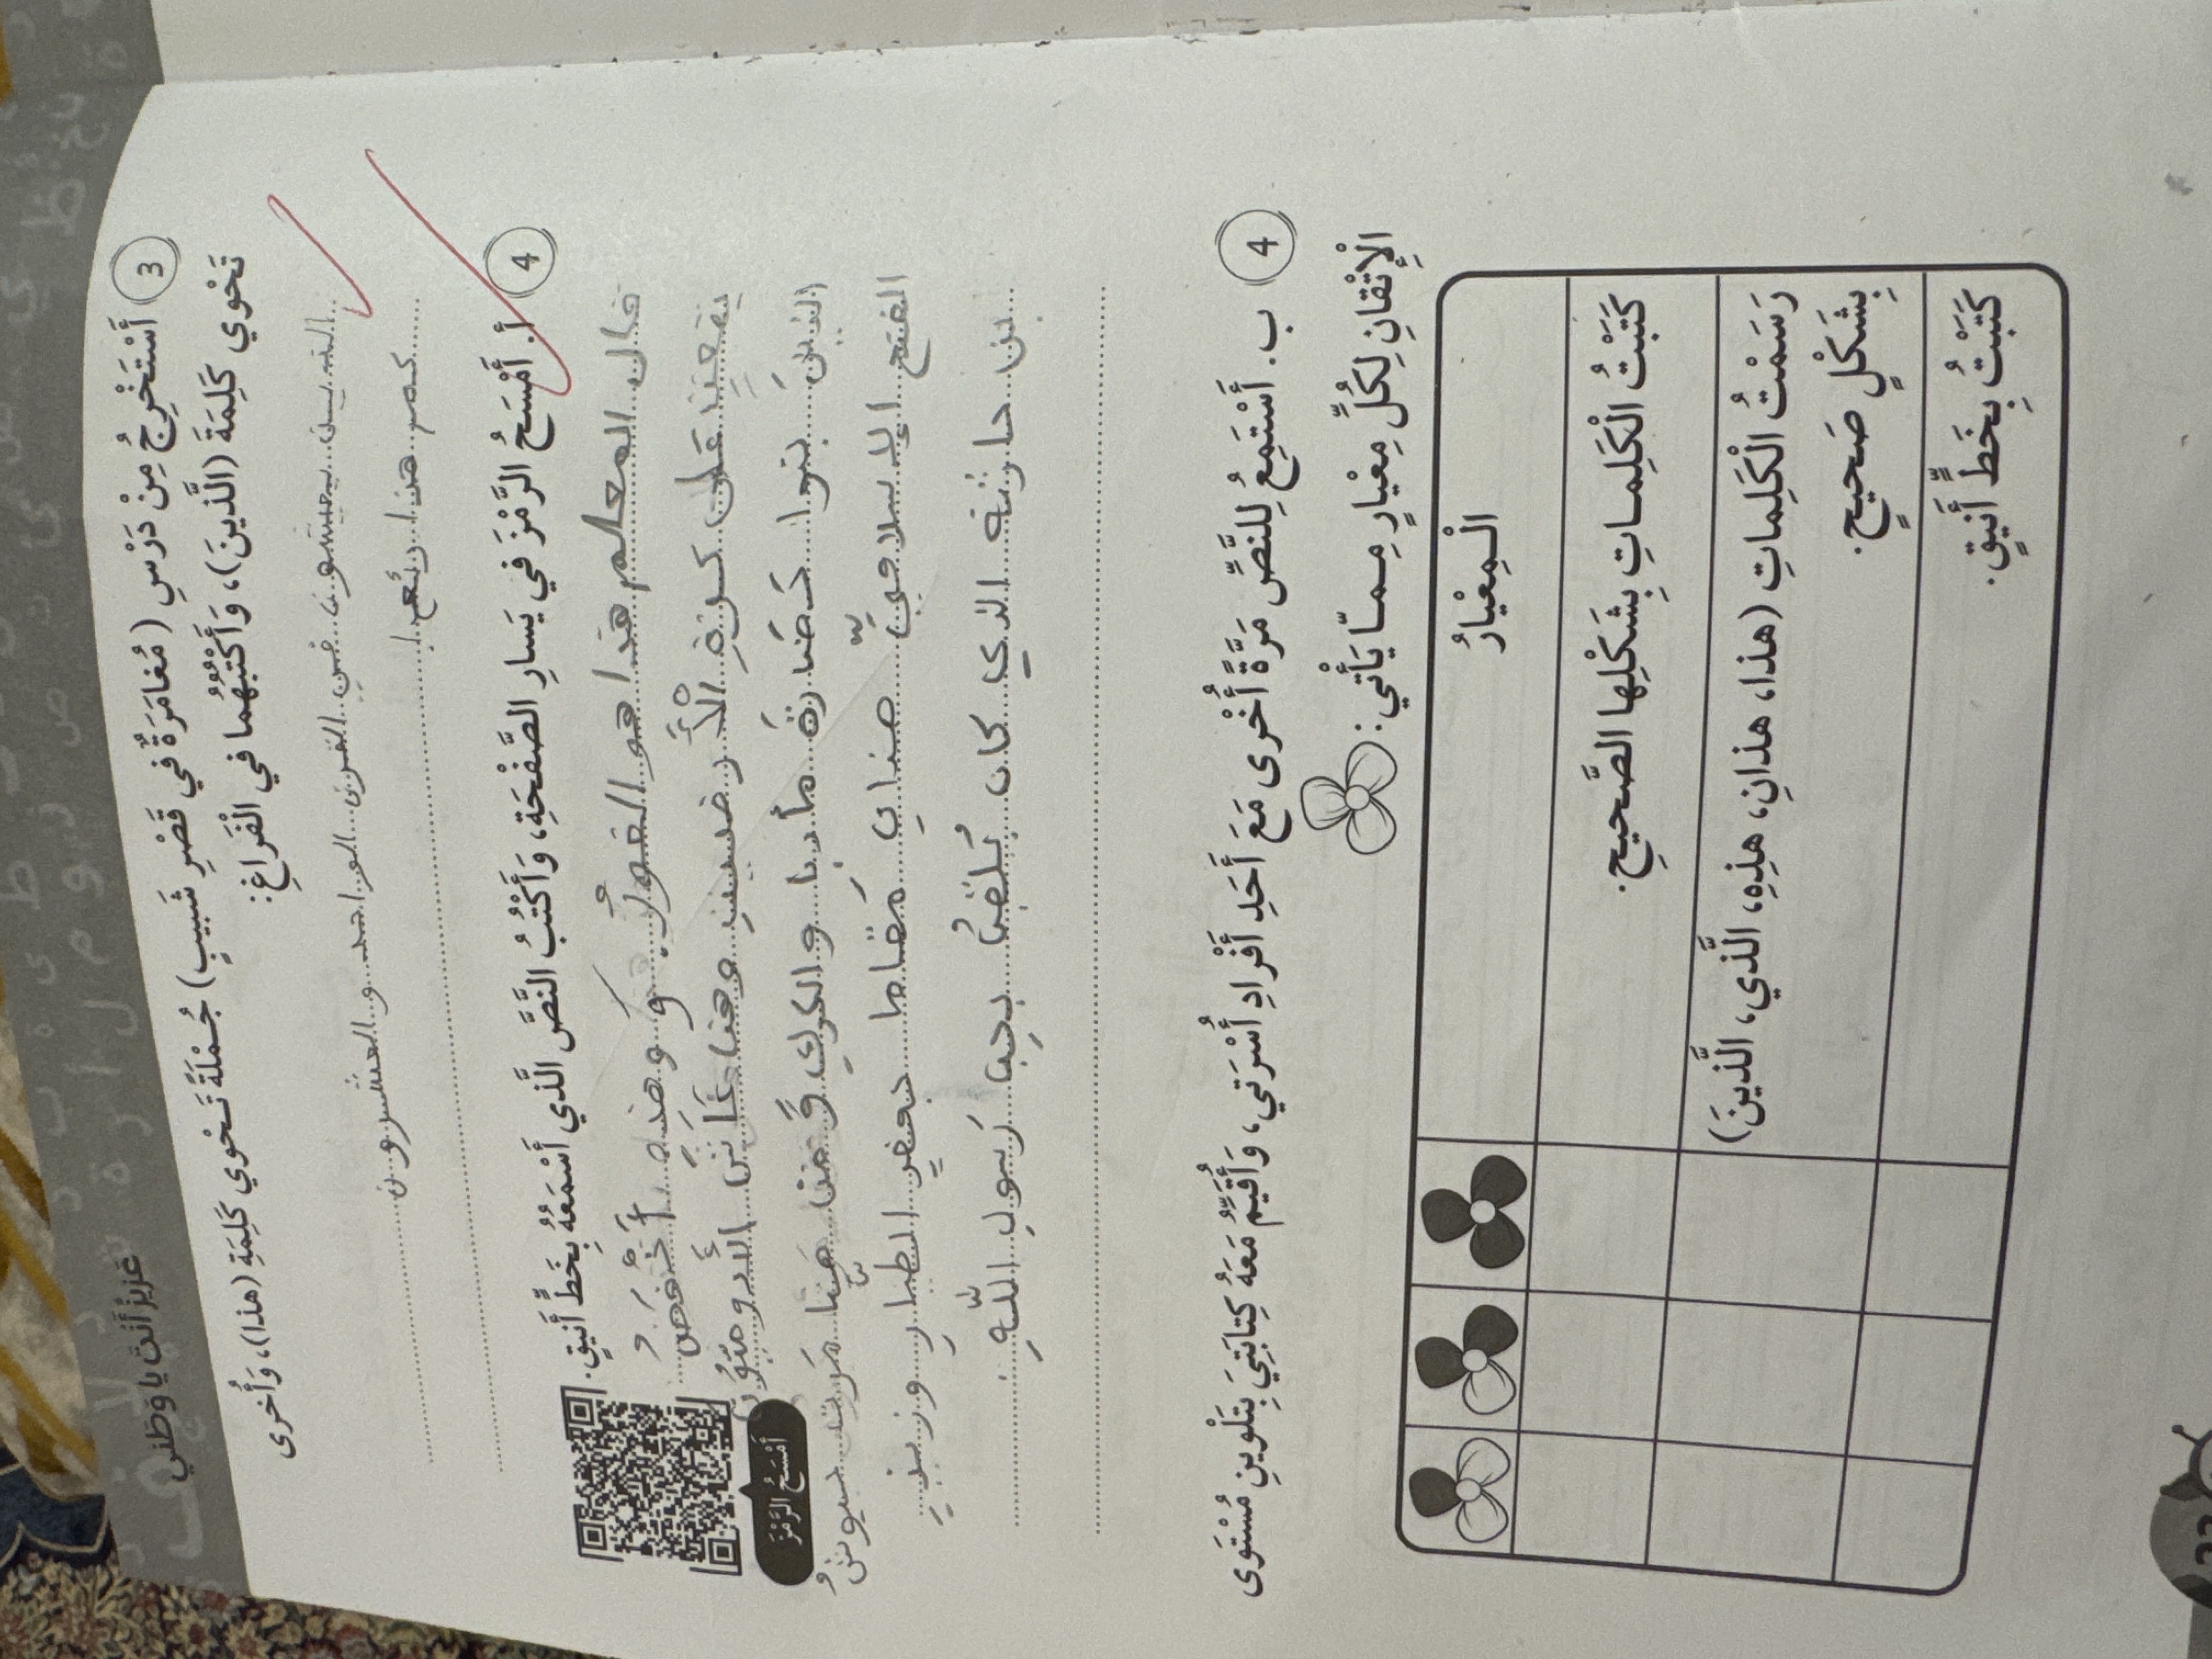 عَزيزٌ أَنْتَ يا وَطَني
3 أَسْتَخْرِجُ مِنْ دَرْسِ (مُغامَرَةٌ في قَصْرِ شَبيبٍ) جُمْلَةً تَحْوي كَلِمَةِ (هذا)، وَأُخرى
تَحْوي كَلِمَةَ (الَّذينَ)، وَأَكْتُبُهُما في الْفَراغِ:
الذين يعيشون في القرن الواحد والعشرون
كم هذا رئع!
4 أ. أَمْسَحُ الرَّمْزَ في يَسارِ الصَّفْحَةِ، وَأَكْتُبُ النَّصَّ الَّذي أَسْمَعُهُ بِخَطٍّ أَنيقٍ.
قال المعلم هذا هو الغورُ وهذه أخفض
على الأردنيين وهنا الأردنيون
الذينَ بنوا حَضارةَ مأدبا والكرك هنا
الفتح الإسلاميّ مقاما جعفرِ الطيار وزيدِ
بن حارثة الذي كان يُلقبُ بحب رسول اللّهِ
أَمْسَحُ الرَّمْزَ
4 ب. أَسْتَمِعُ لِلنَّصِّ مَرَّةً أُخْرى مَعَ أَحَدِ أَفْرادِ أُسْرَتي، وَأُقَيِّمُ مَعَهُ كِتابَتِيَ بِتَلْوينِ مُسْتَوى
الْإِتْقانِ لِكُلِّ مِعْيارٍ مِـمّا يَأْتي:
الْـمِعْيارُ
كَتَبْتُ الْكَلِماتِ بِشَكْلِها الصَّحيحِ.
رَسَمْتُ الْكَلِماتِ (هذا، هذانِ، هذِهِ، الَّذي، الَّذينَ)
بِشَكْلٍ صَحيحٍ.
كَتَبْتُ بِخَطٍّ أَنيقٍ.